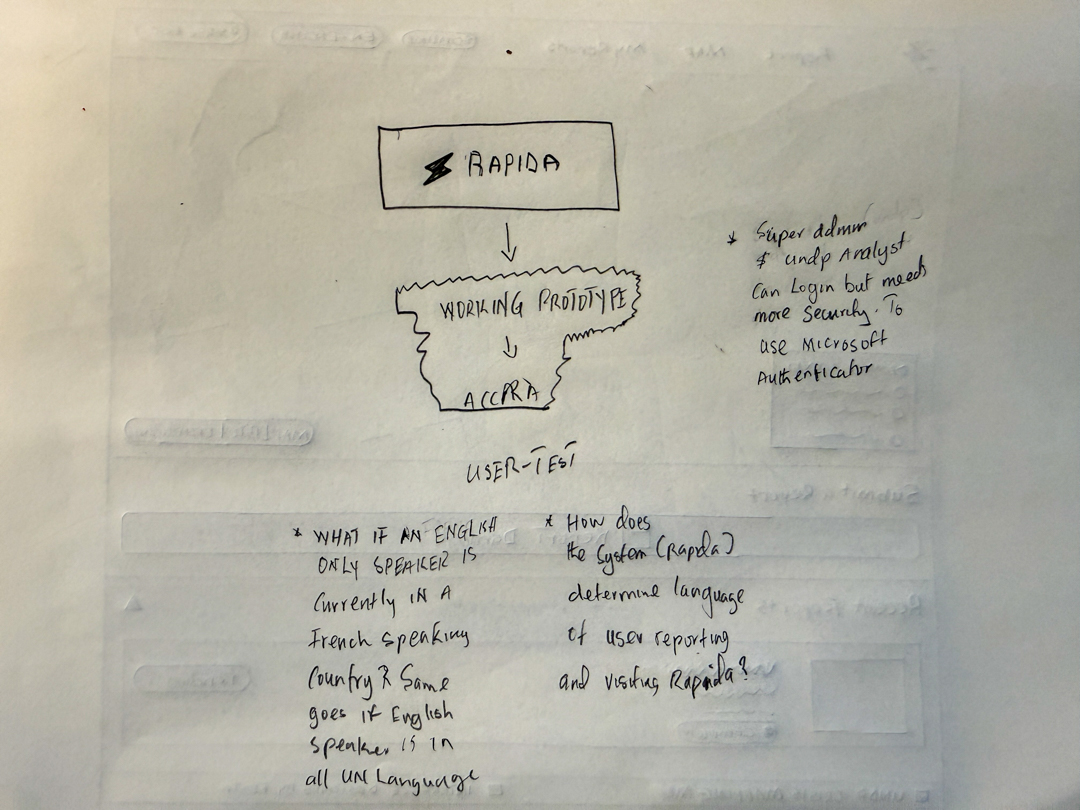 RAPIDA
WORKING PROTOTYPE
ACCRA
* Super admin
& undp Analyst
Can Login but needs
more Security. To
use Microsoft
Authenticator
USER-TEST
* WHAT IF AN ENGLISH
ONLY SPEAKER IS
Currently IN A
French speaking
Country? Same
goes if English
speaker is in
all UN Language
* How does
the System (Rapida)
determine language
of user reporting
and visiting Rapida?